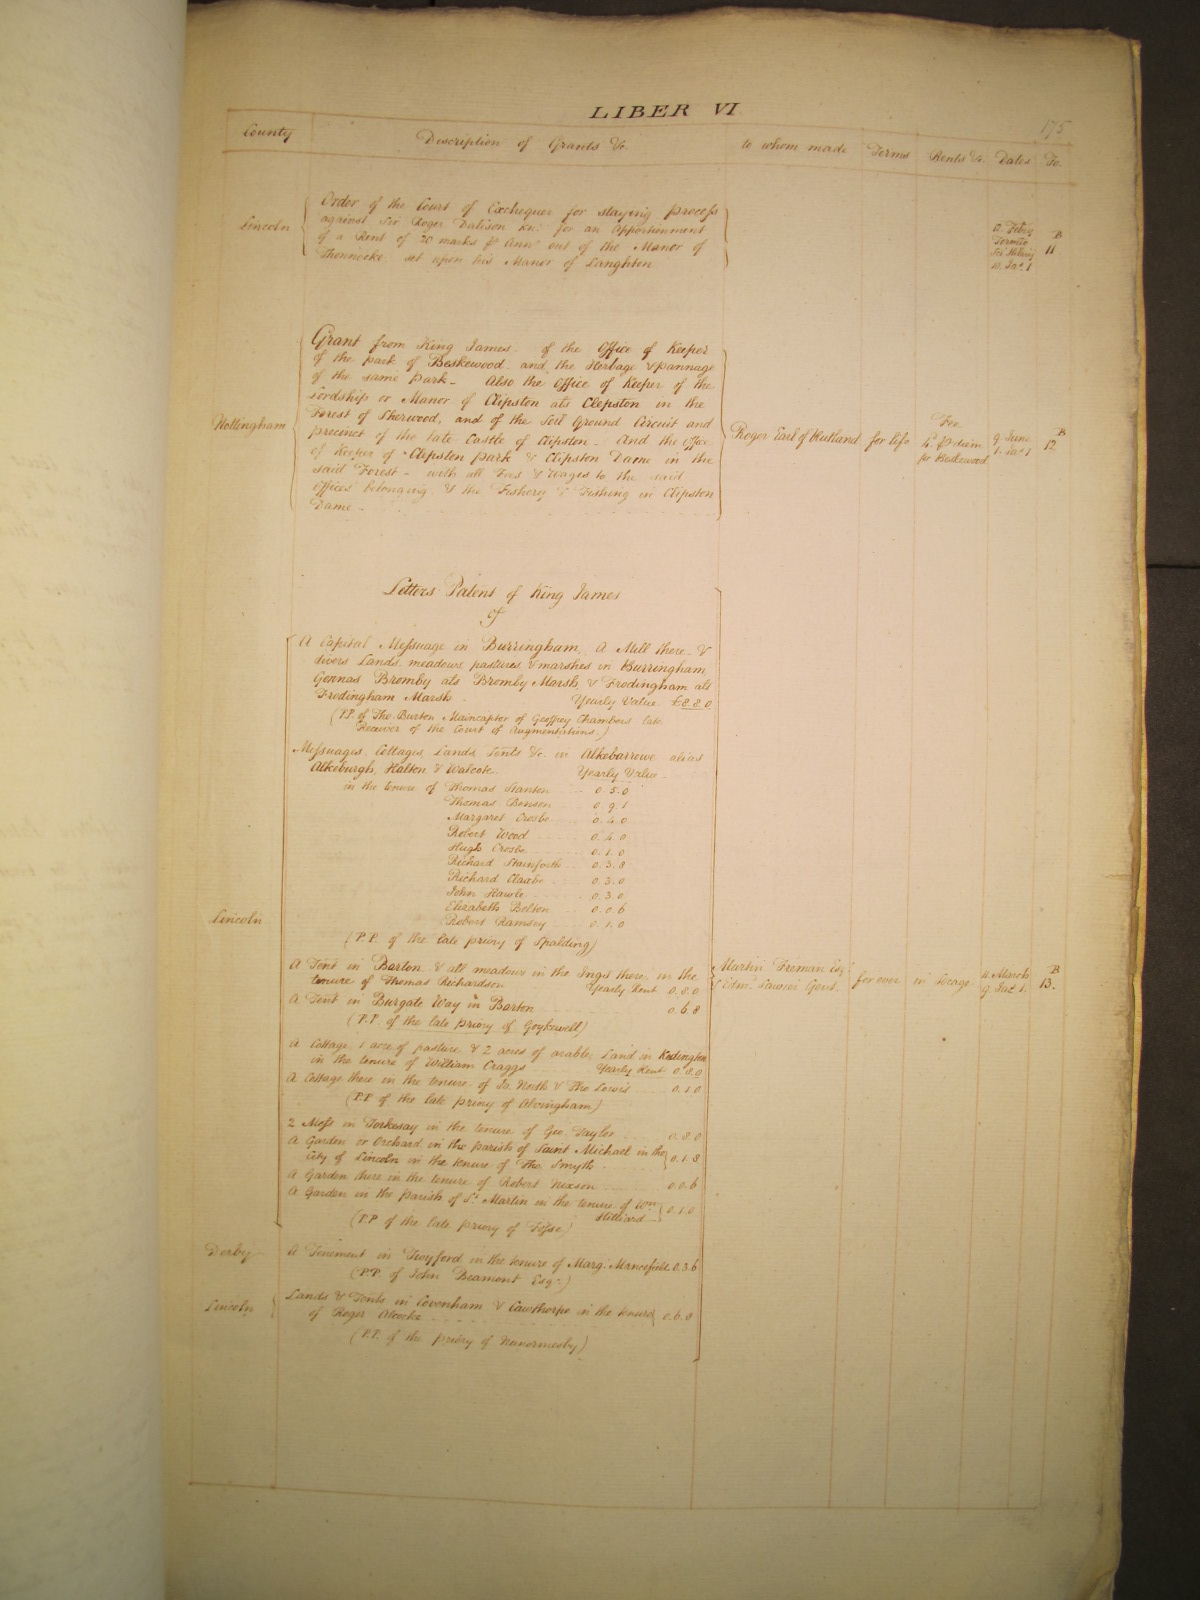 LIBER VI
175
County
Description of Grants &c.
to whom made
Terms
Rents &c.
Dates
Fo.
Lincoln
Order of the Court of Exchequer for staying process
against Sir Roger Dalison Knt. for an Apportionment
of a Rent of 20 marks p Ann out of the Manor of
Thonnocke set upon his Manor of Langhton
12 Febry
Termio
Sci Hilarij
10. Jac. 1
B
11
Nottingham
Grant from King James of the Office of Keeper
of the park of Beskewood and the Herbage & pannage
of the same Park - Also the Office of Keeper of the
Lordship or Manor of Clipston als Clepston in the
Forest of Sherwood, and of the Soil Ground Circuit and
precinct of the late Castle of Clipston - And the office
of Keeper of Clipston park & Clipston Dame in the
said Forest - with all Fees & Wages to the said
Offices belonging & the Fishery & Fishing in Clipston
Dame -
Roger Earl of Rutland
for life
Fee
4d. p diem
for Beskewood
9 June
1. Jac. 1
B
12
Letters Patent of King James
of
A Capital Messuage in Burringham, A Mill there - &
divers Lands, meadows, pastures, & marshes in Burringham,
Gonnas Bromby als Bromby Marsh, & Frodingham als
Frodingham Marsh - Yearly Value £8.8.0
(P.P. of Tho. Burton Maincaptor of Geoffrey Chambers late
Receiver of the Court of Augmentations.)
Messuages, Cottages, Lands, Tents &c. in Alkebarrowe alias
Alkeburgh, Halton & Walcote. Yearly Value -
in the tenure of Thomas Stanton 0.5.0
Thomas Benson 0.9.1
Margaret Crosbe 0.4.0
Robert Wood 0.4.0
Hugh Crosbe 0.1.0
Richard Stainforth 0.3.8
Richard Claxbe 0.3.0
John Hawle 0.3.0
Elizabeth Belton 0.0.6
Robert Ramsey 0.1.0
(P.P. of the late priory of Spalding)
Lincoln
A Tent in Barton & all meadows in the Ings there, in the
tenure of Thomas Richardson Yearly Rent 0.8.0
A Tent in Burgate Way in Barton 0.6.8
(P.P. of the late priory of Goykewell)
Martin Freman Esq
& Edmd. Sawier Gent.
for ever
in Socage
11 March
9 Jac. 1.
B
13.
A Cottage, 1 acre of pasture & 2 acres of arable Land in Kedington
in the tenure of William Craggs Yearly Rent 0.8.0
A Cottage there in the tenure of Jo. Neith & Tho Lewis 0.1.0
(P.P. of the late priory of Alvingham)
2 Mess in Torkesay in the tenure of Geo. Taylor 0.8.0
A Garden or Orchard in the parish of Saint Michael in the
City of Lincoln in the tenure of Tho. Smyth 0.1.8
A Garden there in the tenure of Robert Nixson 0.0.6
A Garden in the parish of St. Martin in the tenure of Wm
Hilliard 0.1.0
(P.P. of the late priory of Fosse)
Derby
A Tenement in Twyford in the tenure of Marg. Mancefield 0.3.6
(P.P. of John Beamont Esqr.)
Lincoln
Lands & Tents in Covenham & Cawthorpe in the tenure
of Roger Alcocke 0.6.8
(P.P. of the priory of Nunormesby)